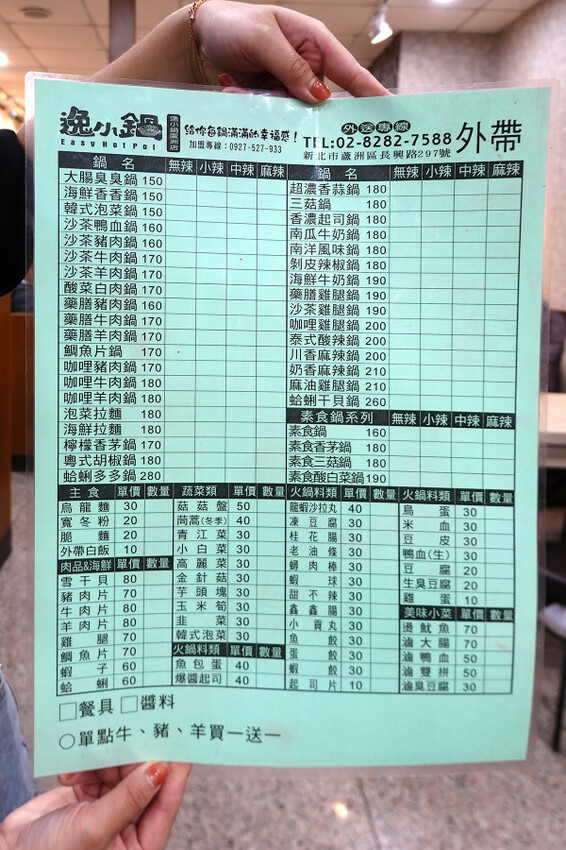 逸小鍋
EasyHotPot
逸小鍋蘆洲店
給你每鍋滿滿的幸福感！
加盟專線：0927-527-933
外送專線
TEL:02-8282-7588
新北市蘆洲區長興路297號
外帶
鍋 名 無辣 小辣 中辣 麻辣
大腸臭臭鍋 150
海鮮香香鍋 150
韓式泡菜鍋 150
沙茶鴨血鍋 160
沙茶豬肉鍋 160
沙茶牛肉鍋 170
沙茶羊肉鍋 170
酸菜白肉鍋 170
藥膳豬肉鍋 160
藥膳牛肉鍋 170
藥膳羊肉鍋 170
鯛魚片鍋 170
咖哩豬肉鍋 170
咖哩牛肉鍋 180
咖哩羊肉鍋 180
泡菜拉麵 180
海鮮拉麵 180
檸檬香茅鍋 170
粵式胡椒鍋 180
蛤蜊多多鍋 280
鍋 名 無辣 小辣 中辣 麻辣
超濃香蒜鍋 180
三菇鍋 180
香濃起司鍋 180
南瓜牛奶鍋 180
南洋風味鍋 180
剝皮辣椒鍋 180
海鮮牛奶鍋 190
藥膳雞腿鍋 190
沙茶雞腿鍋 190
咖哩雞腿鍋 200
泰式酸辣鍋 200
川香麻辣鍋 200
奶香麻辣鍋 210
麻油雞腿鍋 210
蛤蜊干貝鍋 260
素食鍋系列 無辣 小辣 中辣 麻辣
素食鍋 160
素食香茅鍋 180
素食三菇鍋 180
素食酸白菜鍋 190
主食 單價 數量
烏龍麵 30
寬冬粉 20
脆麵 20
外帶白飯 10
肉品&海鮮 單價 數量
雪干貝 80
豬肉片 70
牛肉片 80
羊肉片 80
雞腿 70
鯛魚片 70
蝦子 60
蛤蜊 60
蔬菜類 單價 數量
菇菇盤 50
茼蒿(冬季) 40
青江菜 30
小白菜 30
高麗菜 30
金針菇 30
芋頭塊 30
玉米筍 30
韭菜 30
韓式泡菜 30
火鍋料類 單價 數量
魚包蛋 40
爆醬起司 40
火鍋料類 單價 數量
龍蝦沙拉丸 40
凍豆腐 30
桂花腸 30
老油條 30
蟳肉棒 30
蝦球 30
甜不辣 30
鑫鑫腸 30
小貢丸 30
魚餃 30
蛋餃 30
蝦餃 30
起司片 10
火鍋料類 單價 數量
鳥蛋 30
米血 30
豆皮 30
鴨血(生) 30
豆腐 20
生臭豆腐 20
雞蛋 10
美味小菜 單價 數量
燙魷魚 70
滷大腸 70
滷鴨血 50
滷雙拼 50
滷臭豆腐 30
□餐具 □醬料
○單點牛、豬、羊買一送一